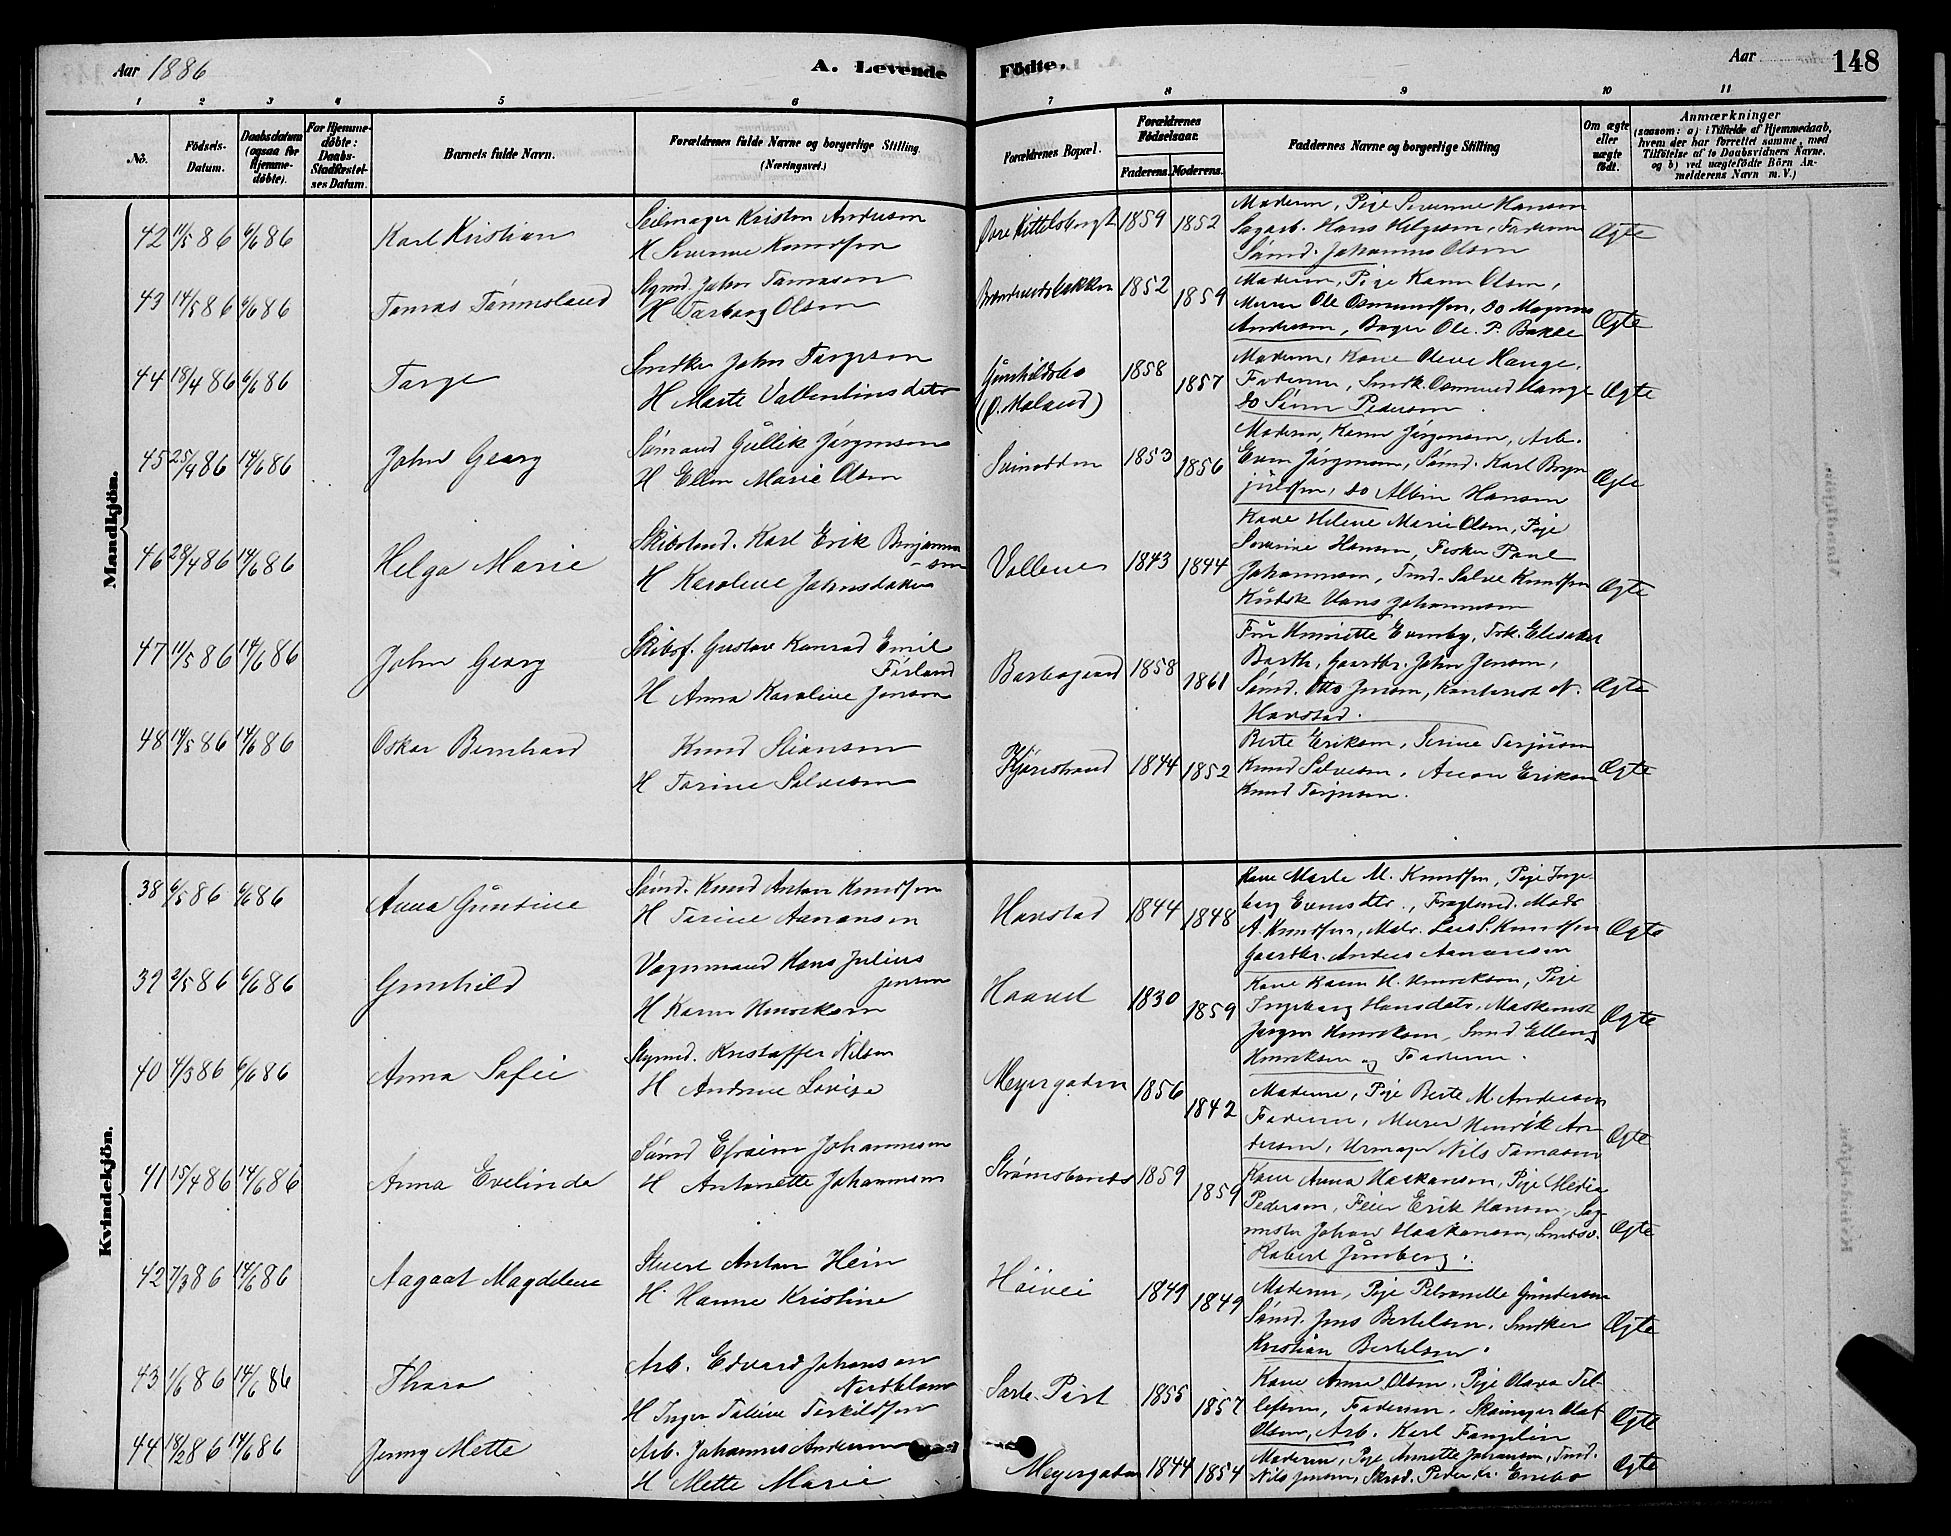 Aar 1886
A. Levende
Födte.
Aar
148
1 2 3 4 5 6 7 8 9 10 11
No.
Födsels-
Datum.
Daabsdatum
(ogsaa for
Hjemme-
döbte).
For Hjemme-
döbte:
Daabs-
Stadfæstel-
ses Datum.
Barnets fulde Navn.
Forældrenes fulde Navne og borgerlige Stilling
(Næringsvei.)
Forældrenes Bopæl.
Forældrenes
Födselsaar.
Faderens. Moderens.
Faddernes Navne og borgerlige Stilling
Om ægte
eller
uægte
födt.
Anmærkninger
(saasom: a) i Tilfælde af Hjemmedaab,
hvem der har forrettet samme, med
Tilföielse af to Daabsvidners Navne.
og b) ved uægtefödte Börn An-
melderens Navn m. V.)
Mandkjön.
42 11/5 86 6/6 86 Karl Kristian
Seilmager Kristen Andersen
H Severine Knudsen
1859 1852
Moderen, Pige Severine Hansen
Sagarb. Hans Helgesen, Faderen
Sømd. Johannes Olsen
Ægte
43 14/5 86 6/6 86 Tomas Tønnesland
Stymd. John Tomasen
H Tarborg Olsen
1852 1859
Moderen, Pige Karen Olsen,
Murer Ole Osmundsen, do Magnus
Andersen, Bager Ole P. Bakke
Ægte
44 18/4 86 6/6 86 Targe
Snedker John Targesen
H Marte Vallentinsdatr
Gunhildsbo
(Ø. Moland)
1858 1857
Moderen, Kone Oleve Hauge,
Faderen, Snedk. Osmund Hauge
do Søren Pedersen
Ægte
45 25/4 86 14/6 86 John Georg
Sømand Gullik Jørgensen
H Ellen Marie Olsen
Svinodden
1853 1856
Moderen, Karen Jørgensen, Arb.
Even Jørgensen, Sømd. Karl Bryn
julfsen, do Albin Hansen
Ægte
46 28/4 86 14/6 86 Helga Marie
Skibstmd. Karl Erik Benjamin
sen
H Karoline Johnsdatter
Vollene
1843 1844
Kone Helene Marie Olsen, Pige
Severine Hansen, Fisker Paul
Johannesen, Tmd. Salve Knudsen
Kudsk Hans Johannesen
Ægte
47 11/5 86 14/6 86 John Georg
Skibsf. Gustav Konrad Emil
Førland
H Anna Karoline Jensen
Barbogaard
1858 1861
Fru Henriette Evensby, Frk. Elisabet
Barth, Gaardbr. John Jensen,
Sømd. Otto Jensen, Kontorist N.
Havstad.
Ægte
48 14/5 86 14/6 86 Oskar Bernhard
Knud Stiansen
H Torine Salvesen
Kjørestrand
1844 1852
Berte Eriksen, Serine Terjusen
Knud Salvesen, Anon Eriksen
Knud Terjusen.
Ægte
Kvindekjön.
38 6/5 86 6/6 86 Anna Guntine
Sømd. Knud Anton Knudsen
H Torine Aanonsen
Havstad
1844 1848
Kone Marte M. Knudsen, Pige Inge-
borg Evensdtr., Fragtmd. Mads
A. Knudsen, Malr. Lars S. Knudsen
Gaardbr. Anders Aanonsen
Ægte
39 2/5 86 6/6 86 Gunhild
Vognmand Hans Julius
Jensen
H Karen Henriksen
Haavet
1830 1859
Kone Karen H. Henriksen, Pige
Ingeborg Hansdatr, Maskinist
Jørgen Henriksen, Smed Elling
Henriksen og Faderen.
Ægte
40 4/3 86 6/6 86 Anna Sofie
Stymd. Kristoffer Nilsen
H Andrine Lovise
Meyergaden
1856 1842
Moderen, Pige Berte M. Andersen
Faderen, Murer Henrik An-
dersen, Urmager Nils Tomasen
Ægte
41 15/4 86 14/6 86 Anna Evelinda
Sømd Efraim Johannesen
H Antonette Johannesen
1859 1859
Kone Anna Haakonsen, Pige Media
Pedersen, Feier Erik Hansen, Sag-
mester Johan Haakonsen, Smedsv.
Robert Junberg.
Ægte
42 7/3 86 14/6 86 Aagaat Magdelene
Stuert Anton Hein
H. Hanne Kristine
Høivei
1849 1849
Moderen, Pige Petronelle Gundersen
Sømd. Jens Bertelsen, Snedker
Kristian Bertelsen.
Ægte
43 1/6 86 14/6 86 Thora
Arb. Edvard Johansen
Nordblom
H Inger Taline Terkildsen
1855 1857
Kone Anna Olsen, Pige Olava Tel-
lefsen, Faderen, Skomager Olaf
Olsen, Arb. Karl Fangelin
Ægte
44 18/2 86 14/6 86 Jenny Mette
Arb. Johannes Andersen
H Mette Marie
Meyergaden
1844 1854
Moderen, Pige Annette Johansen, Tmd.
Nils Jensen, Skred. Peder Kr. Enebo
Ægte